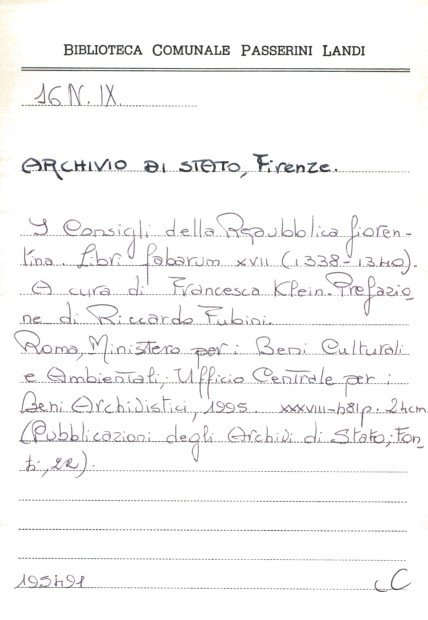 BIBLIOTECA COMUNALE PASSERINI LANDI
16 N. IX.
ARCHIVIO DI STATO, Firenze.
I Consigli della Repubblica fioren-
tina. Libri fabarum XVII (1338-1340).
A cura di Francesca Klein. Prefazio-
ne di Riccardo Fubini.
Roma, Ministero per i Beni Culturali
e Ambientali, Ufficio Centrale per i
Beni Archivistici, 1995. XXXVIII-481p. 24cm
(Pubblicazioni degli Archivi di Stato; Fon-
ti, 22).
195491
C